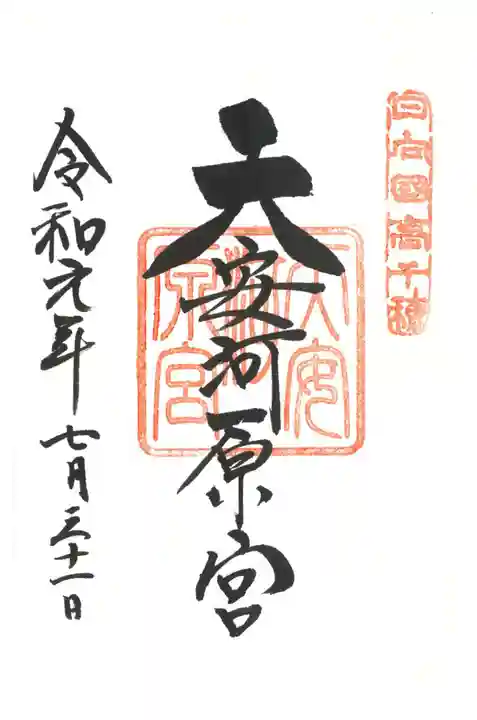 日向國高千穂
天安河原宮
天安河原宮
令和元年七月三十一日